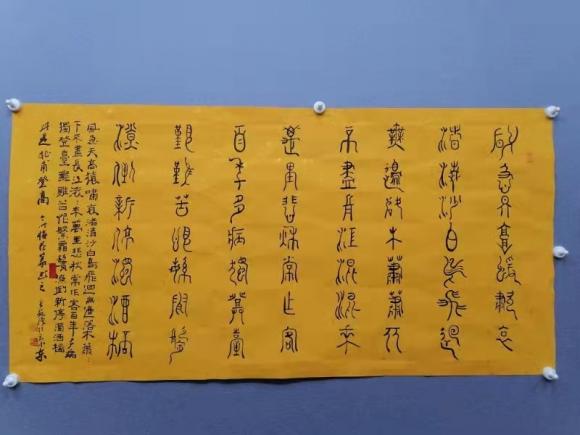 風急天高猿嘯哀
渚清沙白鳥飛迴
無邊落木蕭蕭下
不盡長江滾滾來
萬里悲秋常作客
百年多病獨登臺
艱難苦恨繁霜鬢
潦倒新停濁酒杯
風急天高猿嘯哀渚清沙白鳥飛迴無邊落木蕭〻
下不盡長江滾〻來萬里悲秋常作客百年多病
獨登臺艱難苦恨繁霜鬢潦倒新停濁酒杯
杜甫登高